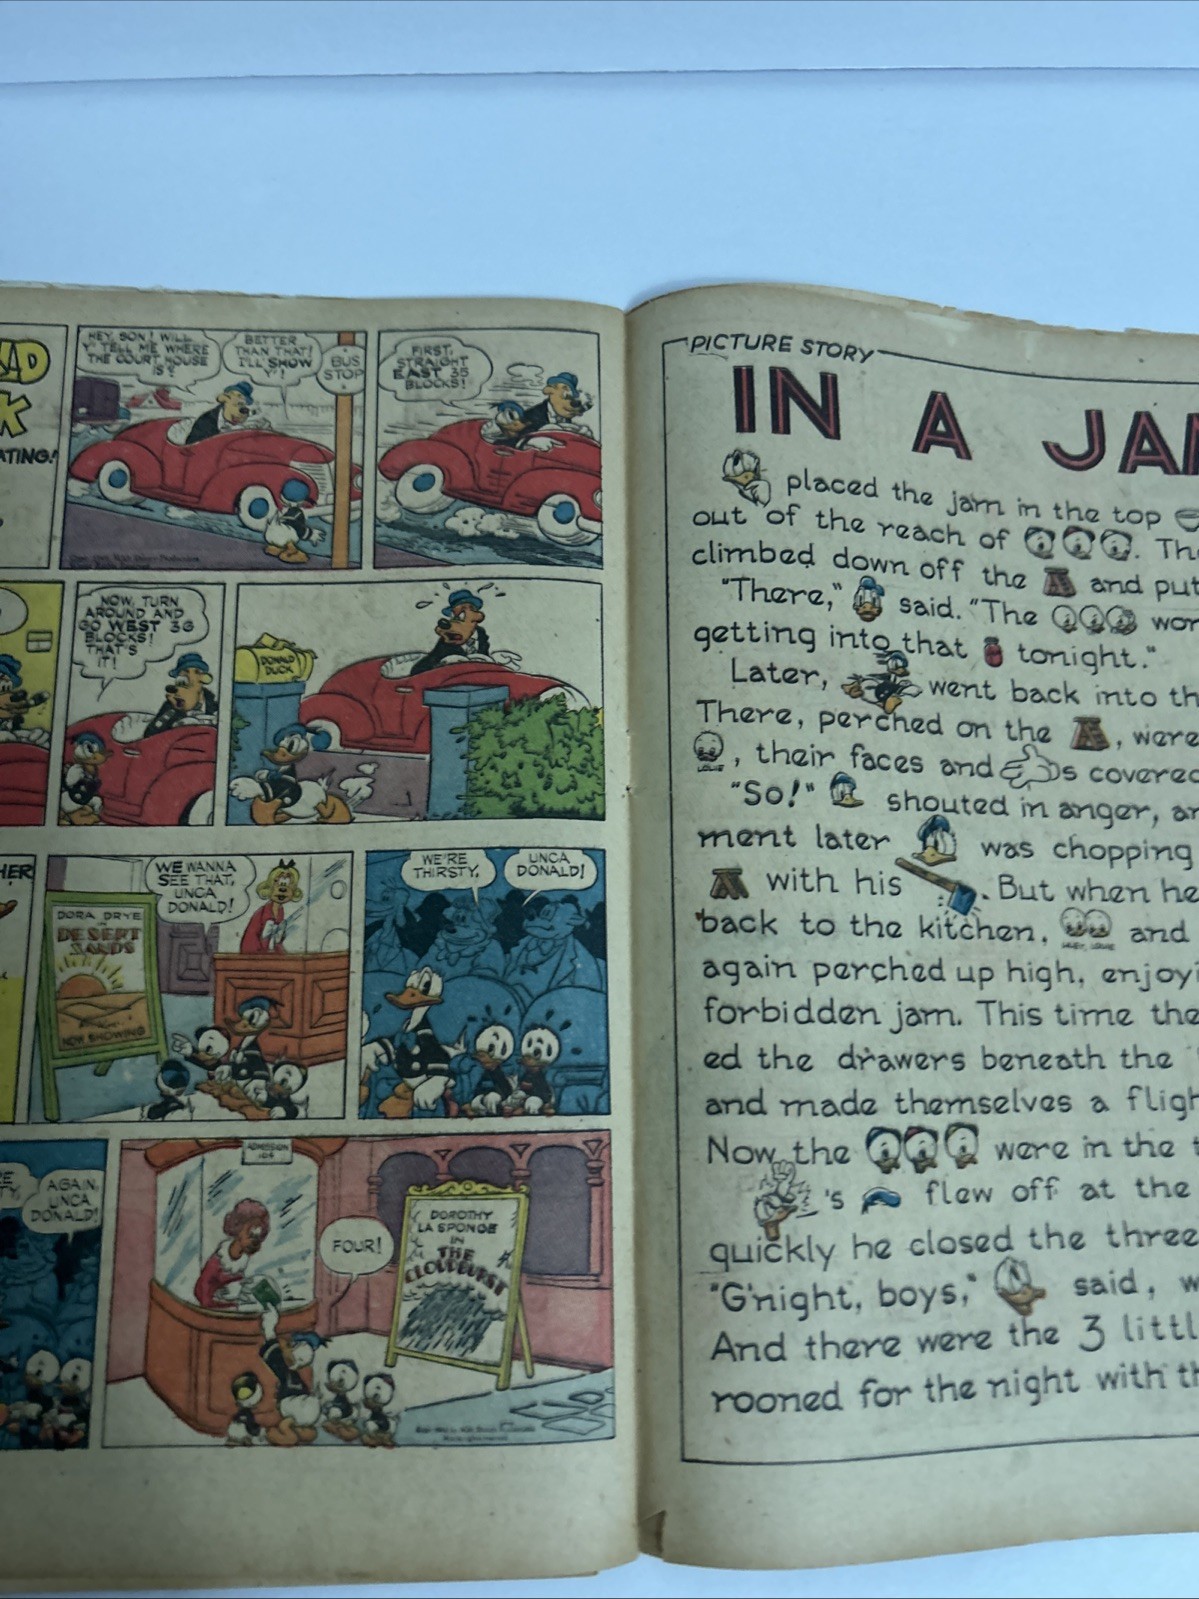 HEY, SON! WILL
Y' TELL ME WHERE
THE COURT HOUSE
IS?
BETTER
THAN THAT!
I'LL SHOW
Y'!
BUS
STOP
FIRST,
STRAIGHT
EAST 35
BLOCKS!
NOW, TURN
AROUND AND
GO WEST 36
BLOCKS!
THAT'S
IT!
DONALD
DUCK
WE WANNA
SEE THAT,
UNCA
DONALD!
DORA DRYE
IN
DESERT
SANDS
NOW SHOWING
WE'RE
THIRSTY,
UNCA
DONALD!
AGAIN,
UNCA
DONALD!
ADMISSION
FOUR!
DOROTHY
LA SPONGE
IN
THE
CLOUDBURST
PICTURE STORY
IN A JAM
placed the jam in the top
out of the reach of
climbed down off the and put
"There," said. "The
getting into that tonight."
Later, went back into
There, perched on the , were
LOUIE, their faces and s covered
"So!" shouted in anger,
ment later was chopping
with his . But when he
back to the kitchen, HUEY, LOUIE and
again perched up high,
forbidden jam. This time
ed the drawers beneath the
and made themselves a
Now the were in the
's flew off at the
quickly he closed the three
"G'night, boys," said,
And there were the 3
rooned for the night with